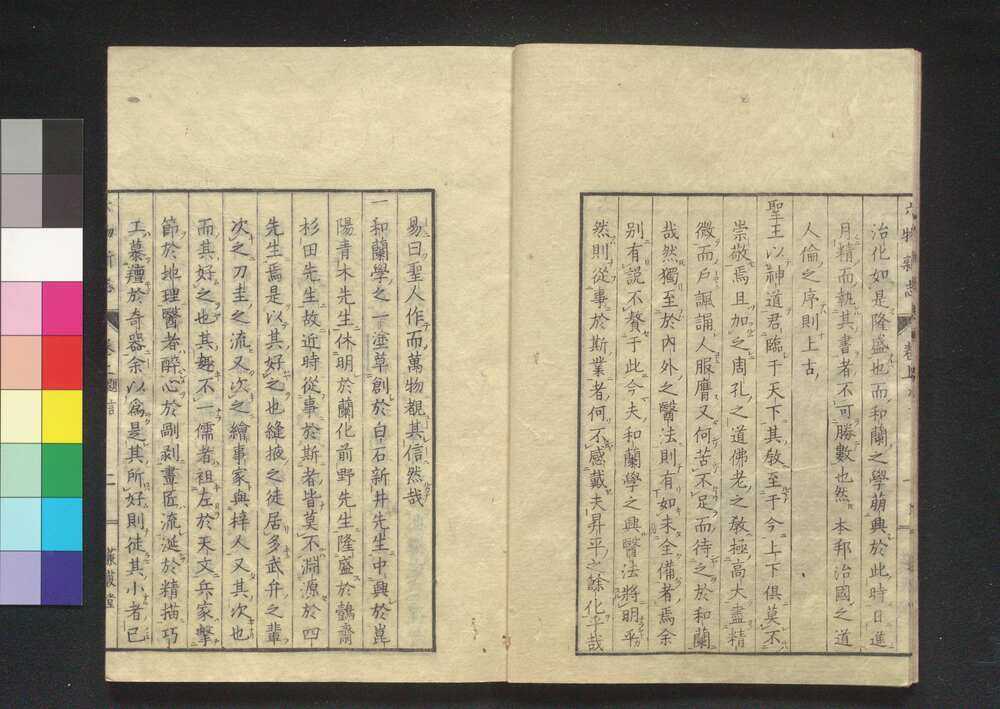 治化如是隆盛也而和蘭之學萠興於此時日進
月精而執其書者不可勝數也然本邦治國之道
人倫之序則上古
聖王以神道君臨于天下其敎至于今上下俱莫不
崇敬焉且加之周孔之道佛老之敎極高大盡精
微而戶諷誦人服膺又何苦不足而待之於和蘭
哉然獨至於內外之醫法則有如未全備者焉余
別有說不贅于此今夫和蘭學之興醫法將明乎
然則從事於斯業者何不感戴夫昇平之餘化乎哉
易曰聖人作而萬物覩其信然哉
一和蘭學之一塗草創於白石新井先生中興於崑
陽青木先生休明於蘭化前野先生隆盛於鷧齋
杉田先生故近時從事於斯者皆莫不淵源於四
先生焉是以其好之也縫掖之徒居多武弁之輩
次之刀圭之流又次之繪事家與梓人又其次也
而其好之也其趣不一儒者袒左於天文兵家擊
節於地理醫者醉心於剮剥畫匠流涎於精描巧
工慕羶於奇器余以爲是其所好則徒其小者已